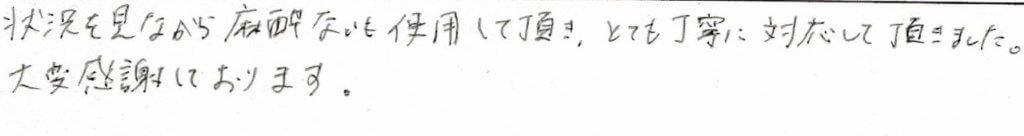 状況を見ながら麻酔なども使用して頂き、とても丁寧に対応して頂きました。
大変感謝しております。